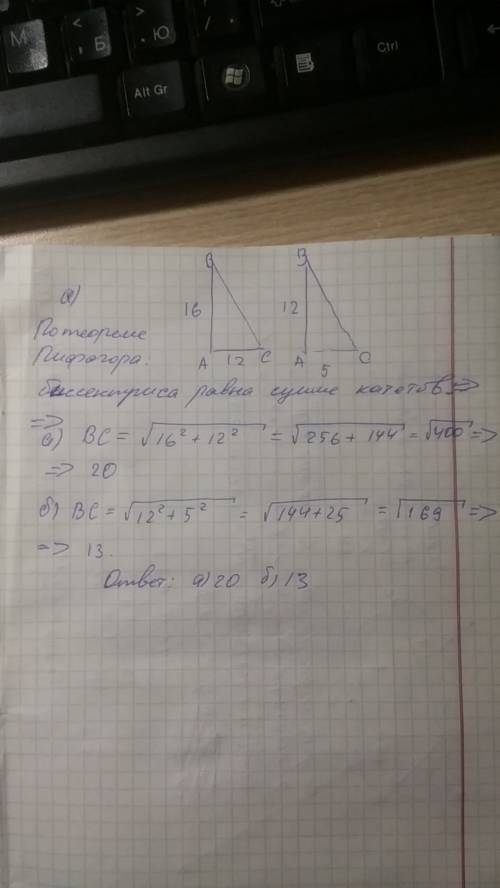 М
< , Б
> . Ю
/ .
Alt Gr
Ctrl
а)
B
B
16
12
По теореме
Пифагора:
A 12 C
A 5 C
биссектриса равна сумме катетов =>
=>
а) BC = √16² + 12² = √256 + 144 = √400 =>
=> 20
б) BC = √12² + 5² = √144 + 25 = √169 =>
=> 13.
Ответ: а) 20 б) 13